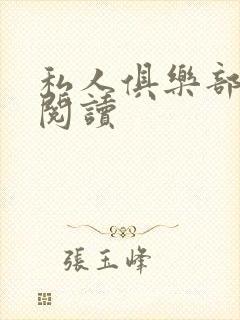 私人俱樂部
閱讀
張玉峰